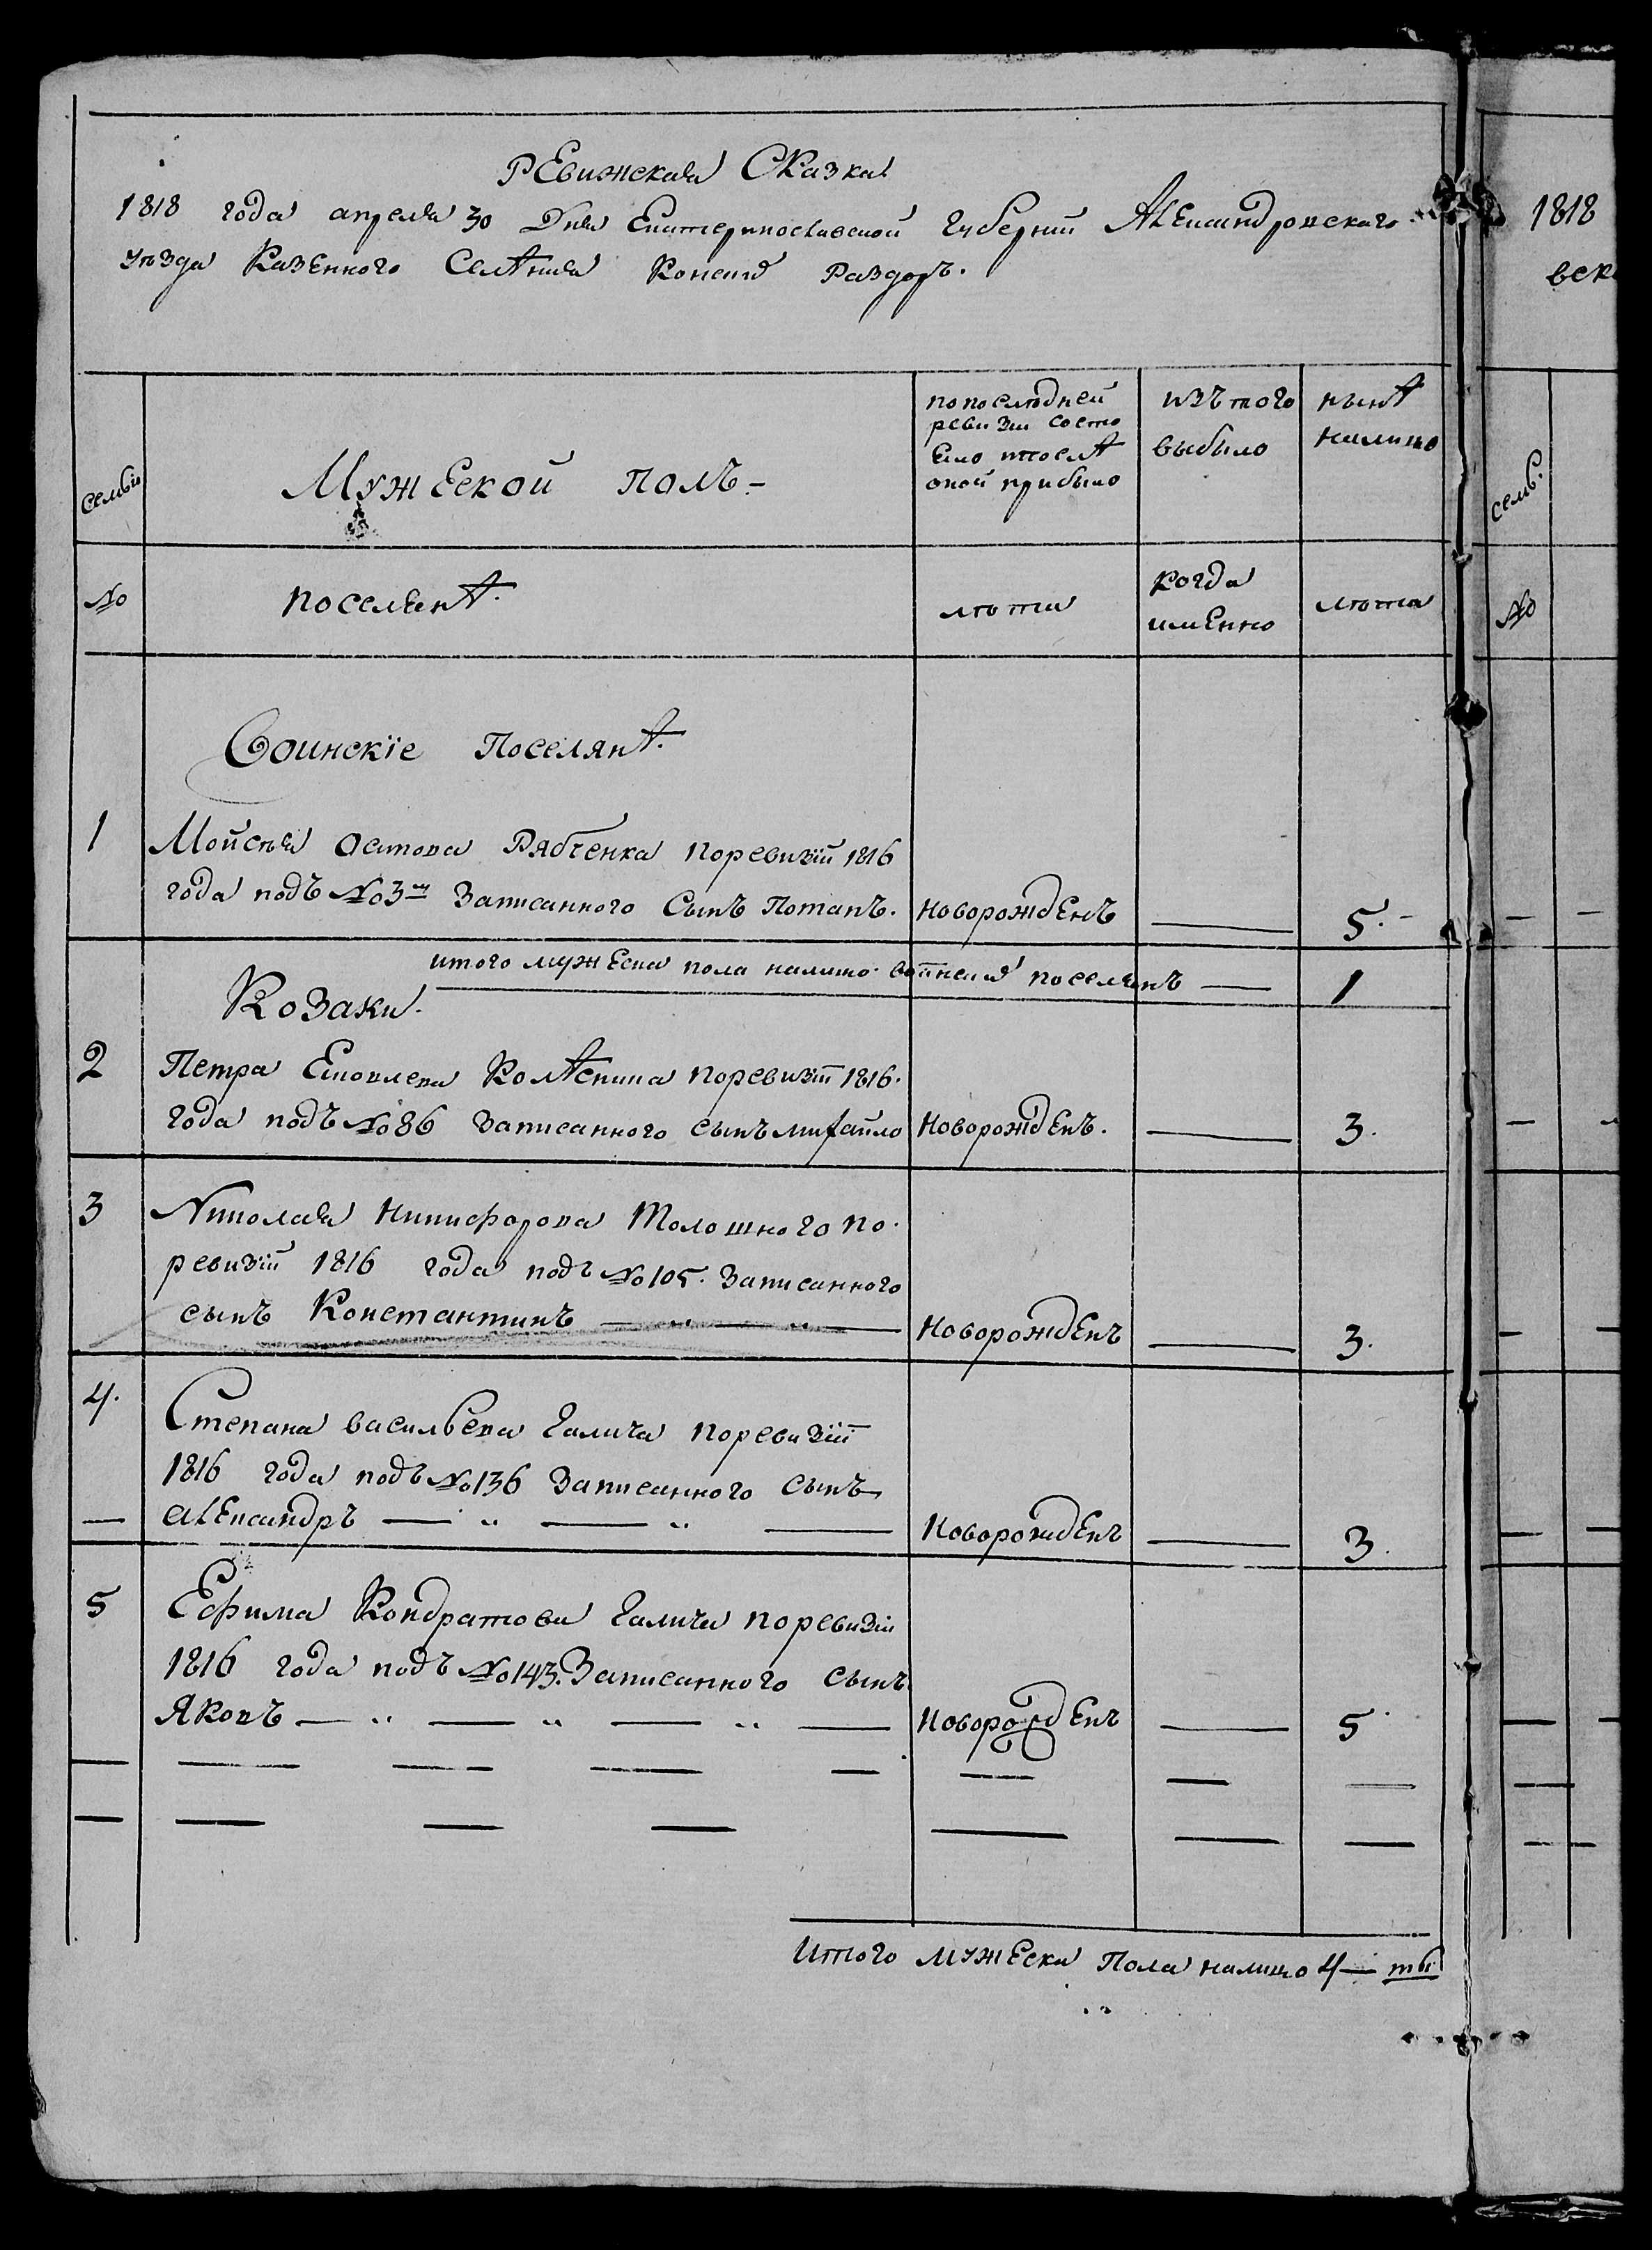 Ревижская Сказка
1818 года апреля 30 Дня Екатеринославской губернии Александровского
уезда Казенного Селения Конских Раздоръ.
семьи
Мужеской полъ
по последней
ревизии состо
яло и после
оной прибыло
изъ того
выбыло
ныне
налицо
№
поселяне
лѣта
когда
именно
лѣта
Воинскіе Поселяне
1
Мойсѣя Осипова Рябченка поревизіи 1816
года подъ №3м Записанного Сынъ Потапъ. Новорожденъ — 5
итого мужеска пола налицо воинскихъ поселянъ — 1
Козаки.
2
Петра Яковлева Колесника поревизіи 1816.
года подъ №86 Записанного сынъ михайло Новорожденъ. — 3.
3
Николая Никифорова Толошного по
ревизіи 1816 года подъ №105. Записанного
сынъ Константинъ — „ — „ — Новорожденъ — 3.
4.
Степана васильева Галича поревизіи
1816 года подъ №136 Записанного сынъ
александръ — „ — „ — Новорожденъ — 3.
5
Ефима Кондратова Галича поревизіи
1816 года подъ №143. Записанного сынъ
Яковъ — „ — „ — „ — Новорожденъ — 5
Итого мужеска Пола налицо 4— ты
1818
семь.
№